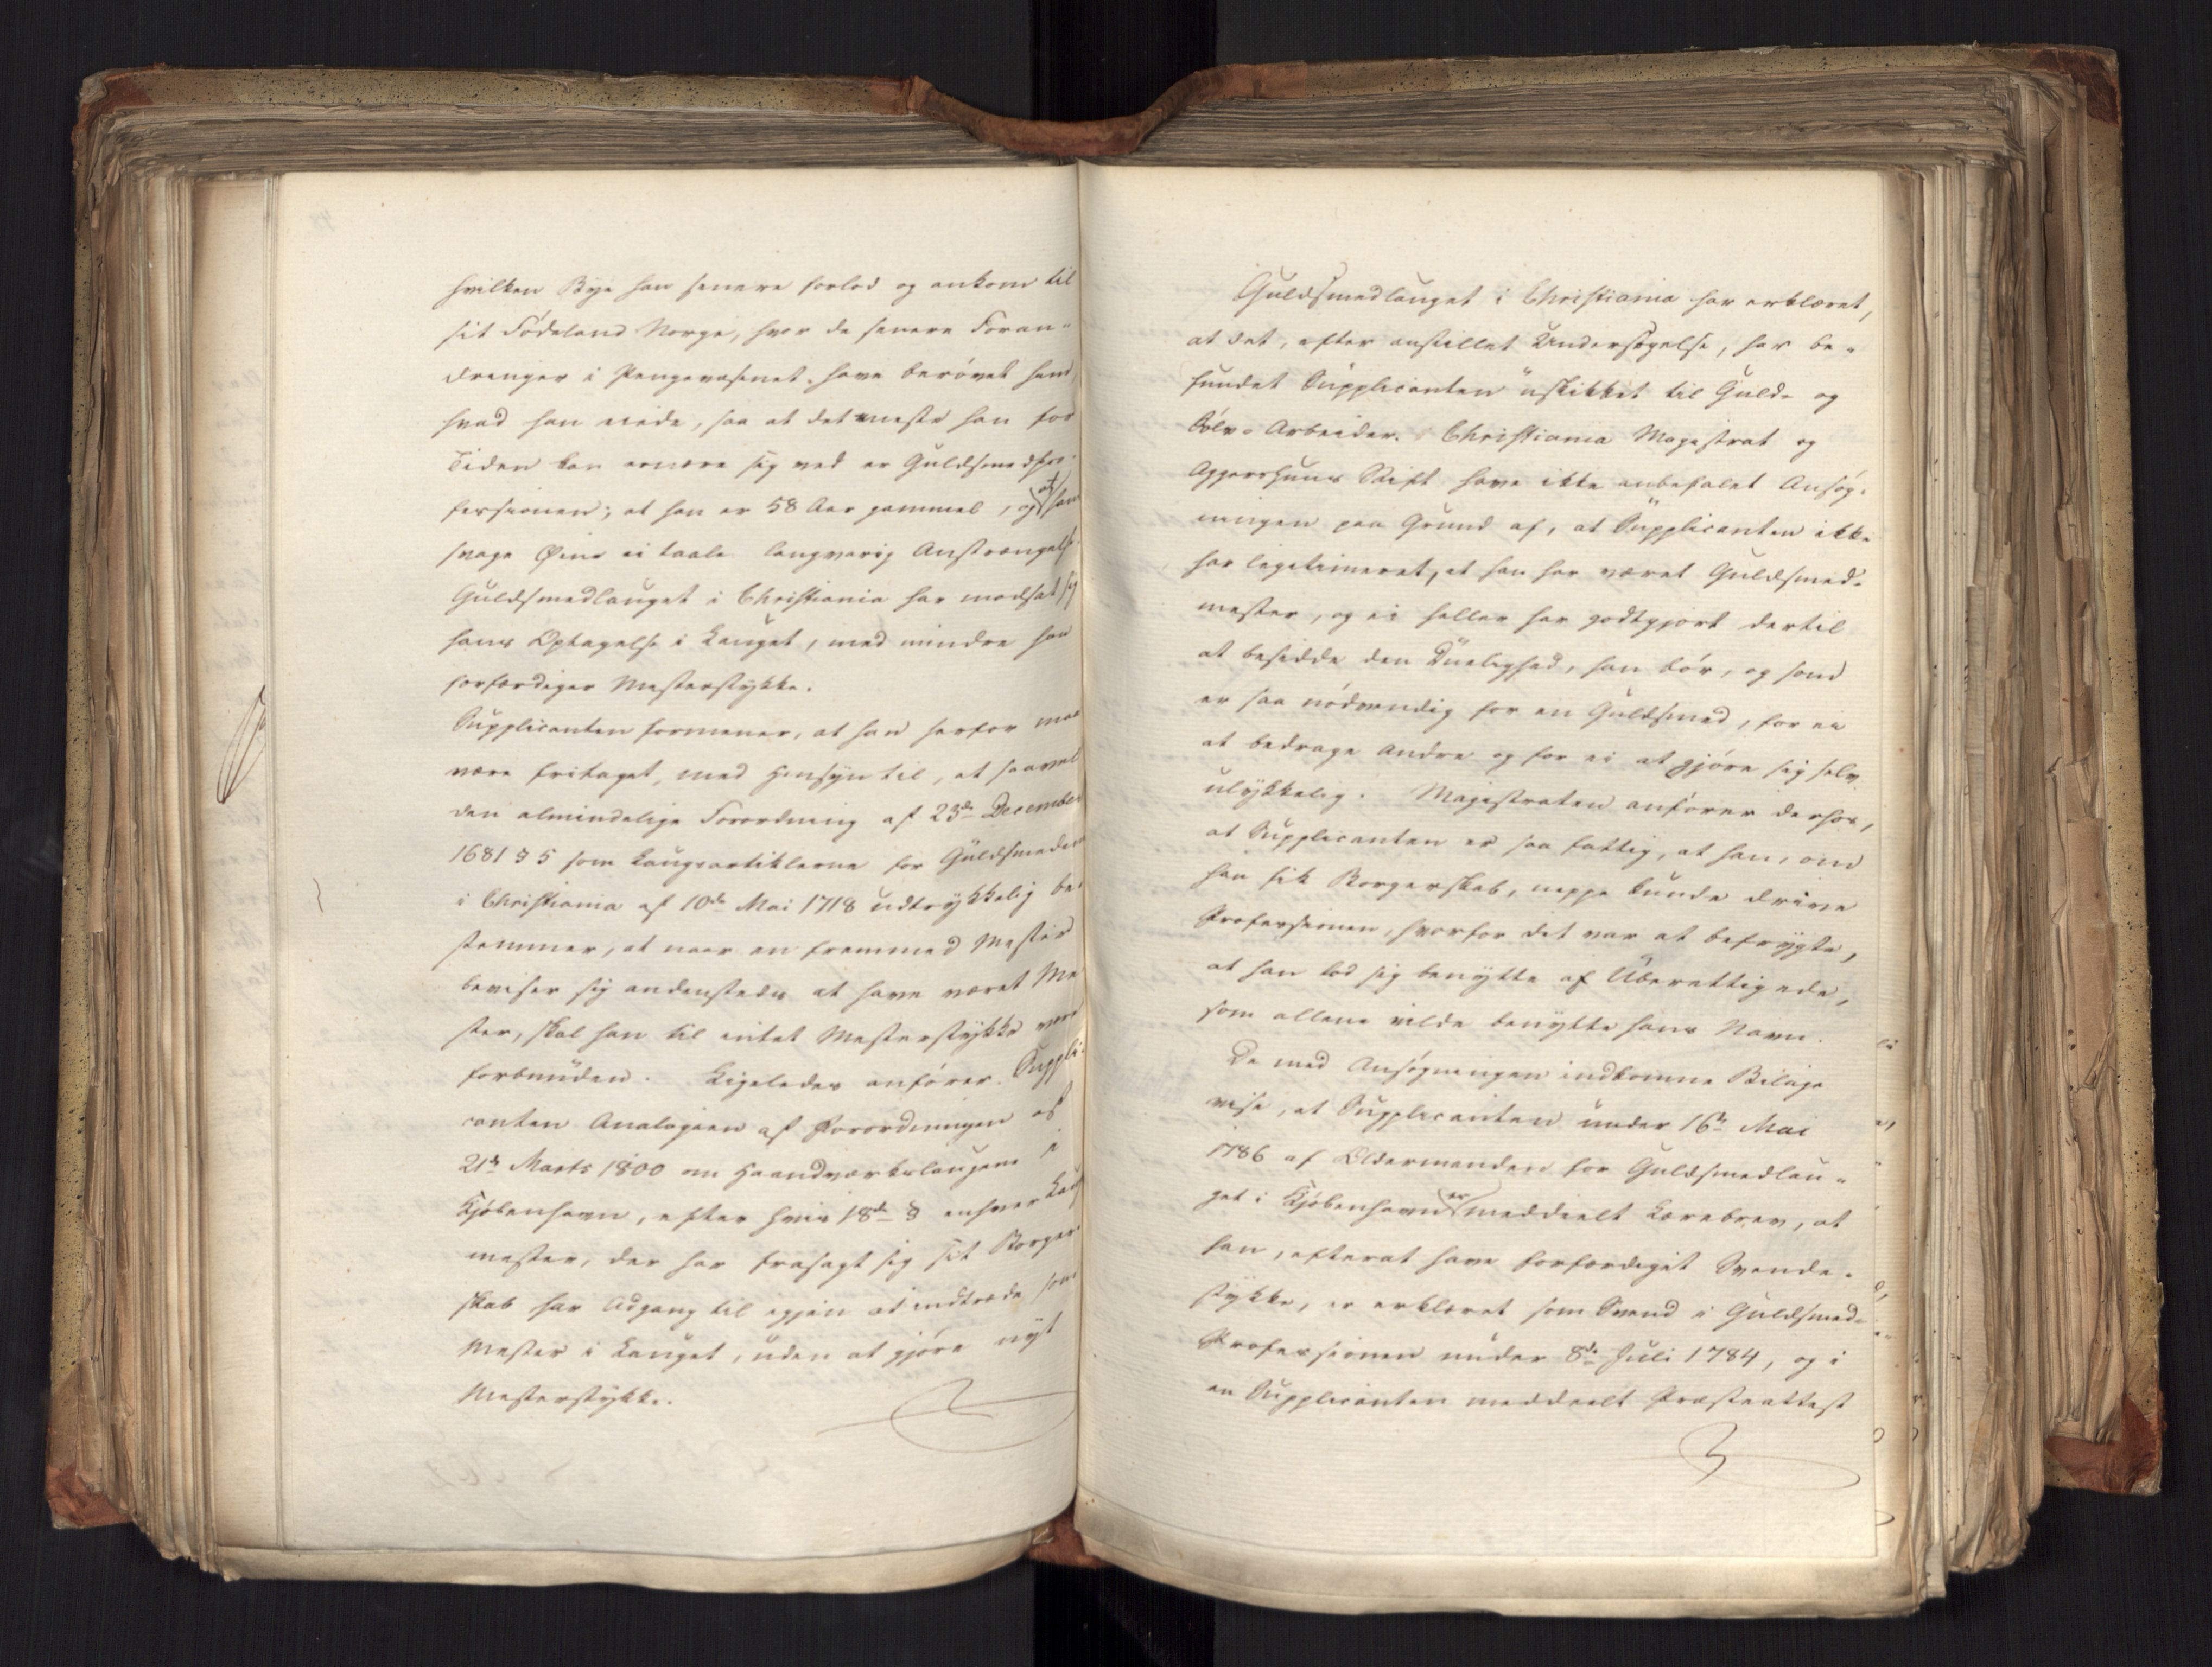 hvilken Bye han senere forlod og ankom til
sit Födeland Norge, hvor de senere Foran-
dringer i Pengevæsenet have berövet ham,
hvad han eiede, saa at det meste han for
Tiden kan ernære sig ved er Guldsmedpro-
fessionen; at han er 58 Aar gammel, og at hans
svage Øine ei taale langvarig Anstrængelse.
Guldsmedlauget i Christiania har modsat sig
hans Optagelse i Lauget, med mindre han
forfærdiger Mesterstykke.
Supplicanten formener, at han herfor maa
være fritaget, med Hensyn til, at saavel
den almindelige Forordning af 23de December
1681 § 5 som Laugsartiklerne for Guldsmedene
i Christiania af 10de Mai 1718 udtrykkelig be-
stemmer, at naar en fremmed Mester
beviser sig andensteds at have været Me-
ster, skal han til intet Mesterstykke være
forbunden. Ligeledes anförer Suppli-
canten Analogien af Forordningen af
21de Marts 1800 om Haandværkslaugene i
Kjöbenhavn, efter hvis 18de § enhver Laugs-
mester, der har frasagt sig sit Borger-
skab har Adgang til igjen at indtræde som
Mester i Lauget, uden at gjöre nyt
Mesterstykke.
Guldsmedlauget i Christiania har erklæret,
at det, efter anstillet Undersögelse, har be-
fundet Supplicanten uskikket til Guld- og
Sölv-Arbeider. Christiania Magistrat og
Aggershuus Stift have ikke anbefalet Ansög-
ningen paa Grund af, at Supplicanten ikke
har legitimeret, at han har været Guldsmed-
mester, og ei heller har godtgjort dertil
at besidde den Duelighed, han bör, og som
er saa nödvendig for en Guldsmed, for ei
at bedrage andre og for ei at gjöre sig selv
ulykkelig. Magistraten anförer derhos,
at Supplicanten er saa fattig, at han, om
han fik Borgerskab, neppe kunde drive
Professionen, hvorfor det var at befrygte,
at han lod sig benytte af Uberettigede,
som allene vilde benytte hans Navn.
De med Ansögningen indkomne Bilage
vise, at Supplicanten under 16de Mai
1786 af Oldermanden for Guldsmedlau-
get i Kjöbenhavn er meddeelt Lærebrev, at
han, efterat have forfærdiget Svende-
stykke, er erklæret som Svend i Guldsmed-
Professionen under 8de Juli 1784, og i
en Supplicanten meddeelt Præsteattest